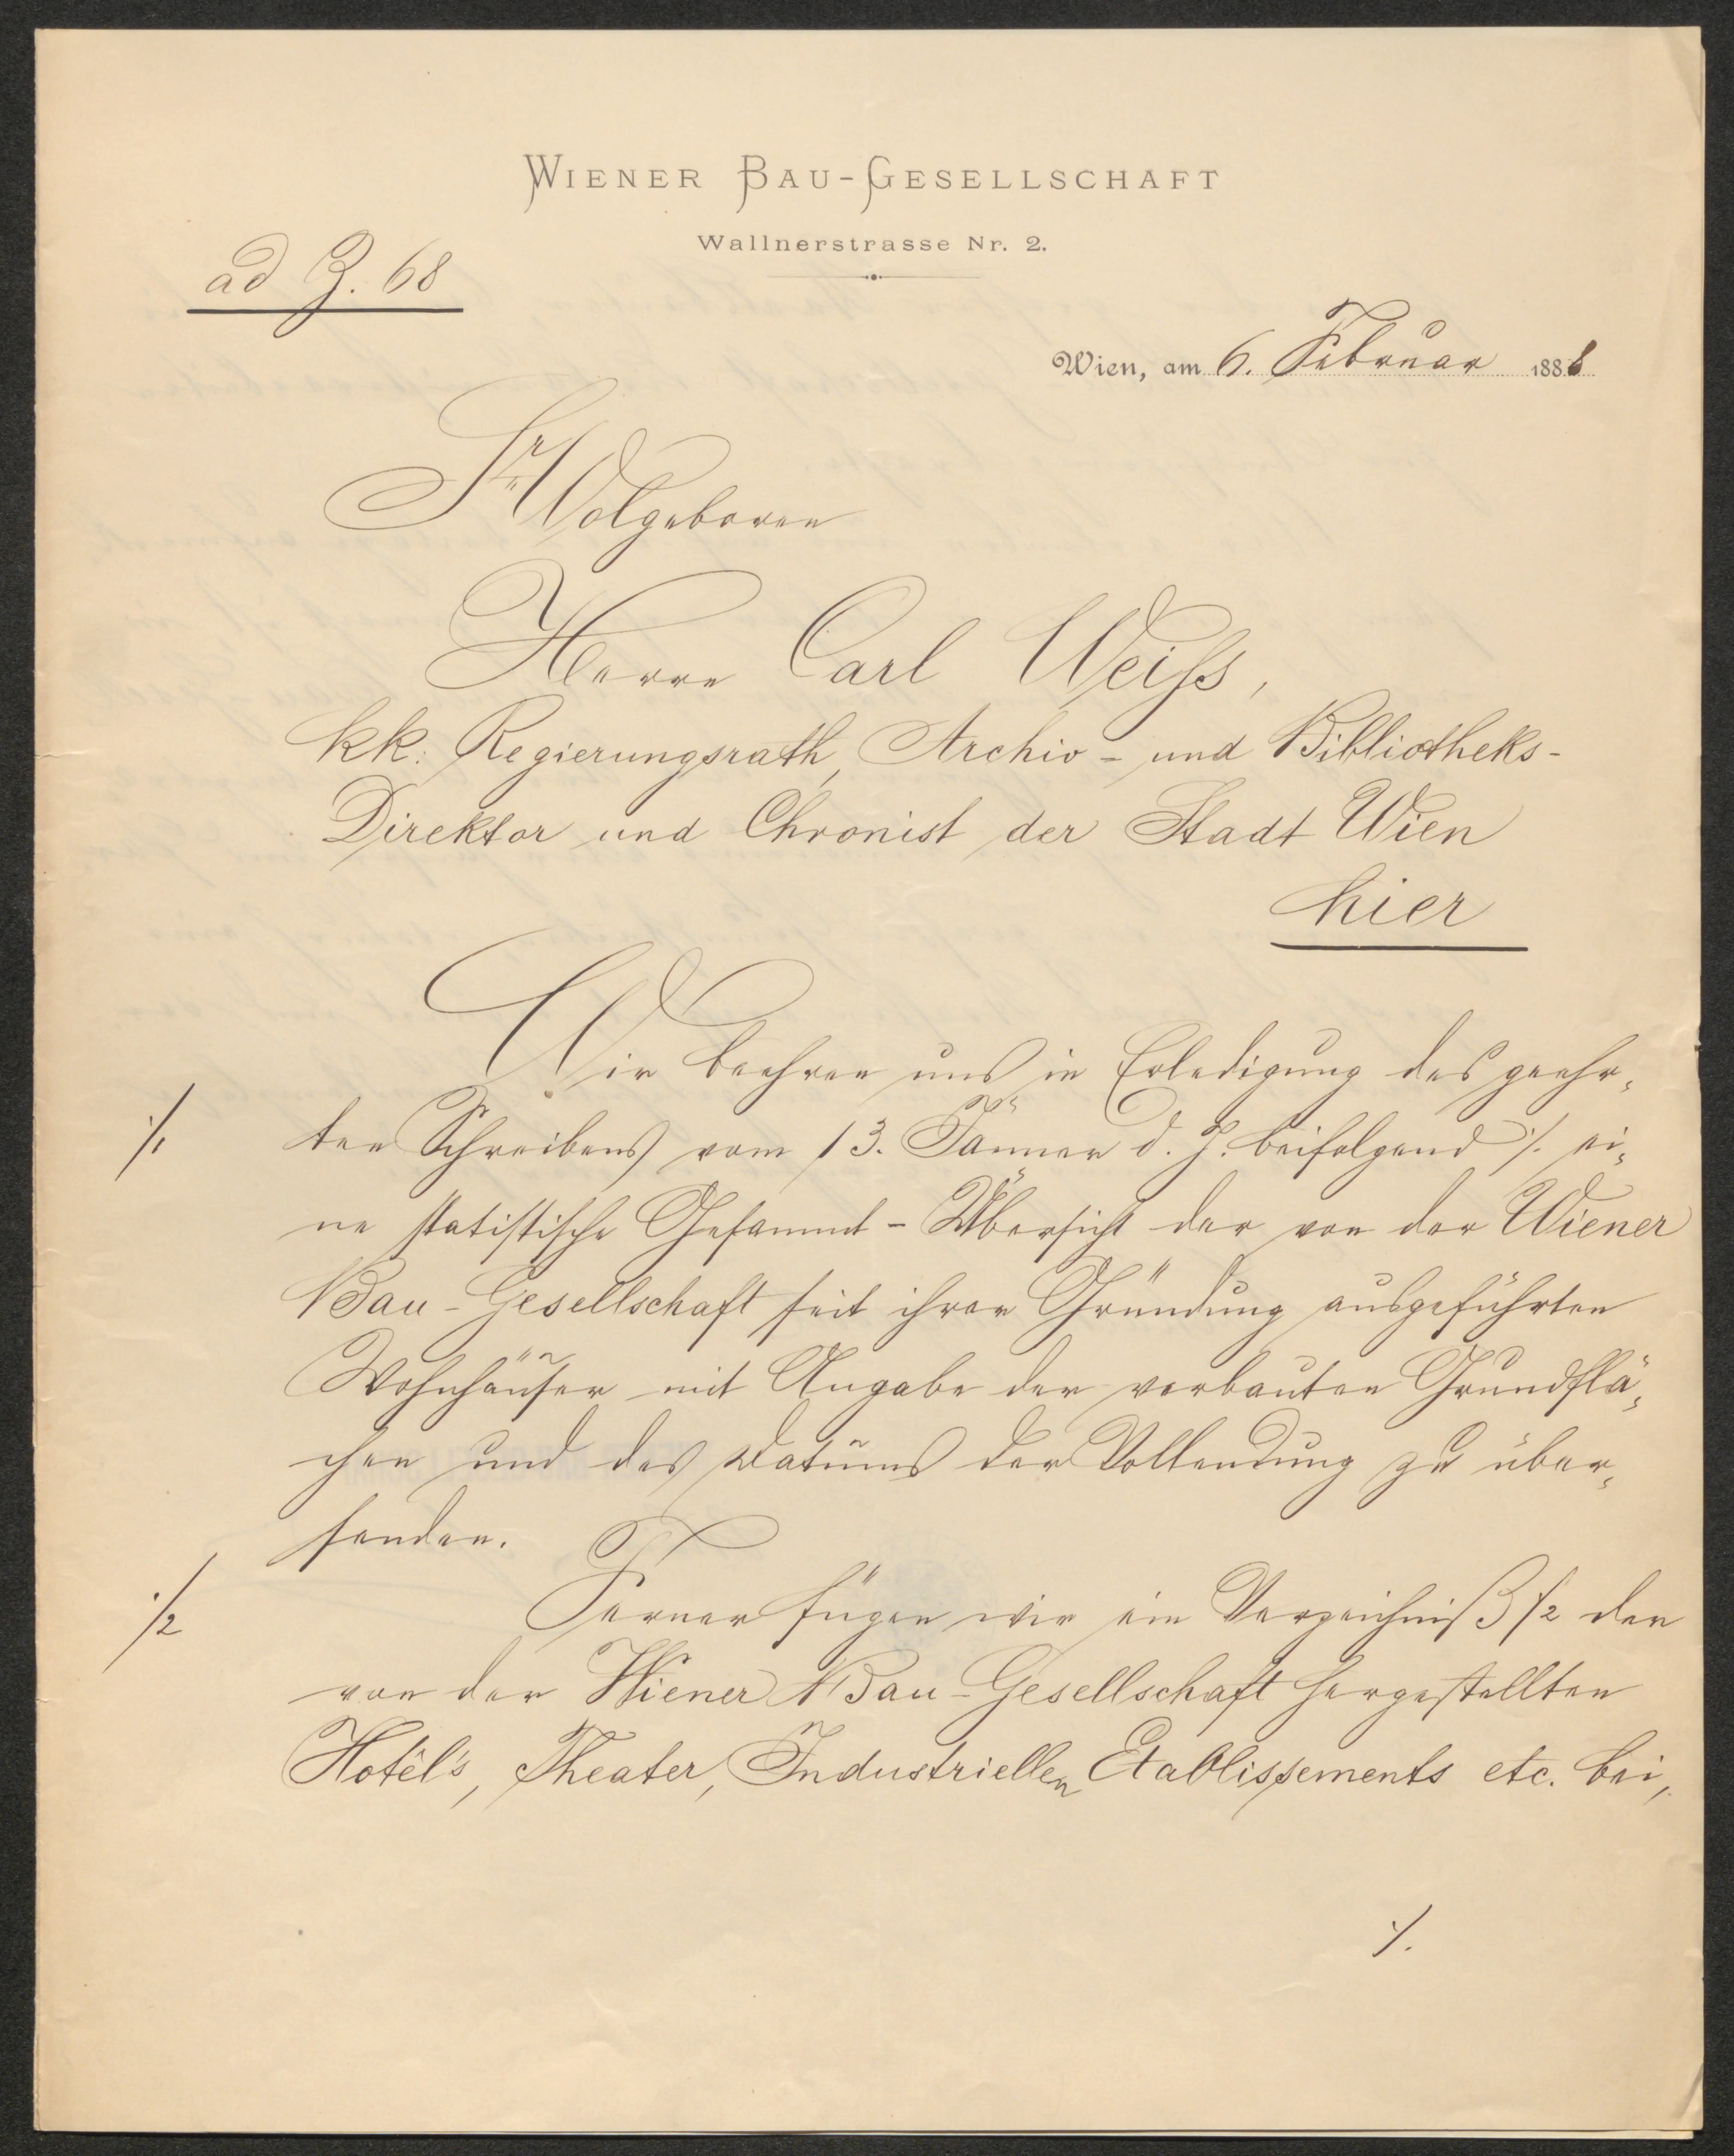 WIENER BAU-GESELLSCHAFT
Wallnerstrasse Nr. 2.
ad Z. 68
Wien, am 6. Februar 1888
Sr Wolgeboren
Herrn Carl Weiss,
kk: Regierungsrath, Archiv- und Bibliotheks-
Direktor und Chronist der Stadt Wien
hier
Wir beehren uns in Erledigung des geehr-
./1 ten Schreibens vom 13. Jänner d. J. beifolgend ./. ei-
ne statistische Gesammt-Übersicht der von der Wiener
Bau-Gesellschaft seit ihrer Gründung ausgeführten
Wohnhäuser mit Angabe der verbauten Grundflä-
chen und des Datums der Vollendung zu über-
senden.
./2 Ferner fügen wir ein Verzeichniß ./2 der
von der Wiener Bau-Gesellschaft hergestellten
Hotêl's, Theater, Industriellen Etablissements etc. bei,
./.